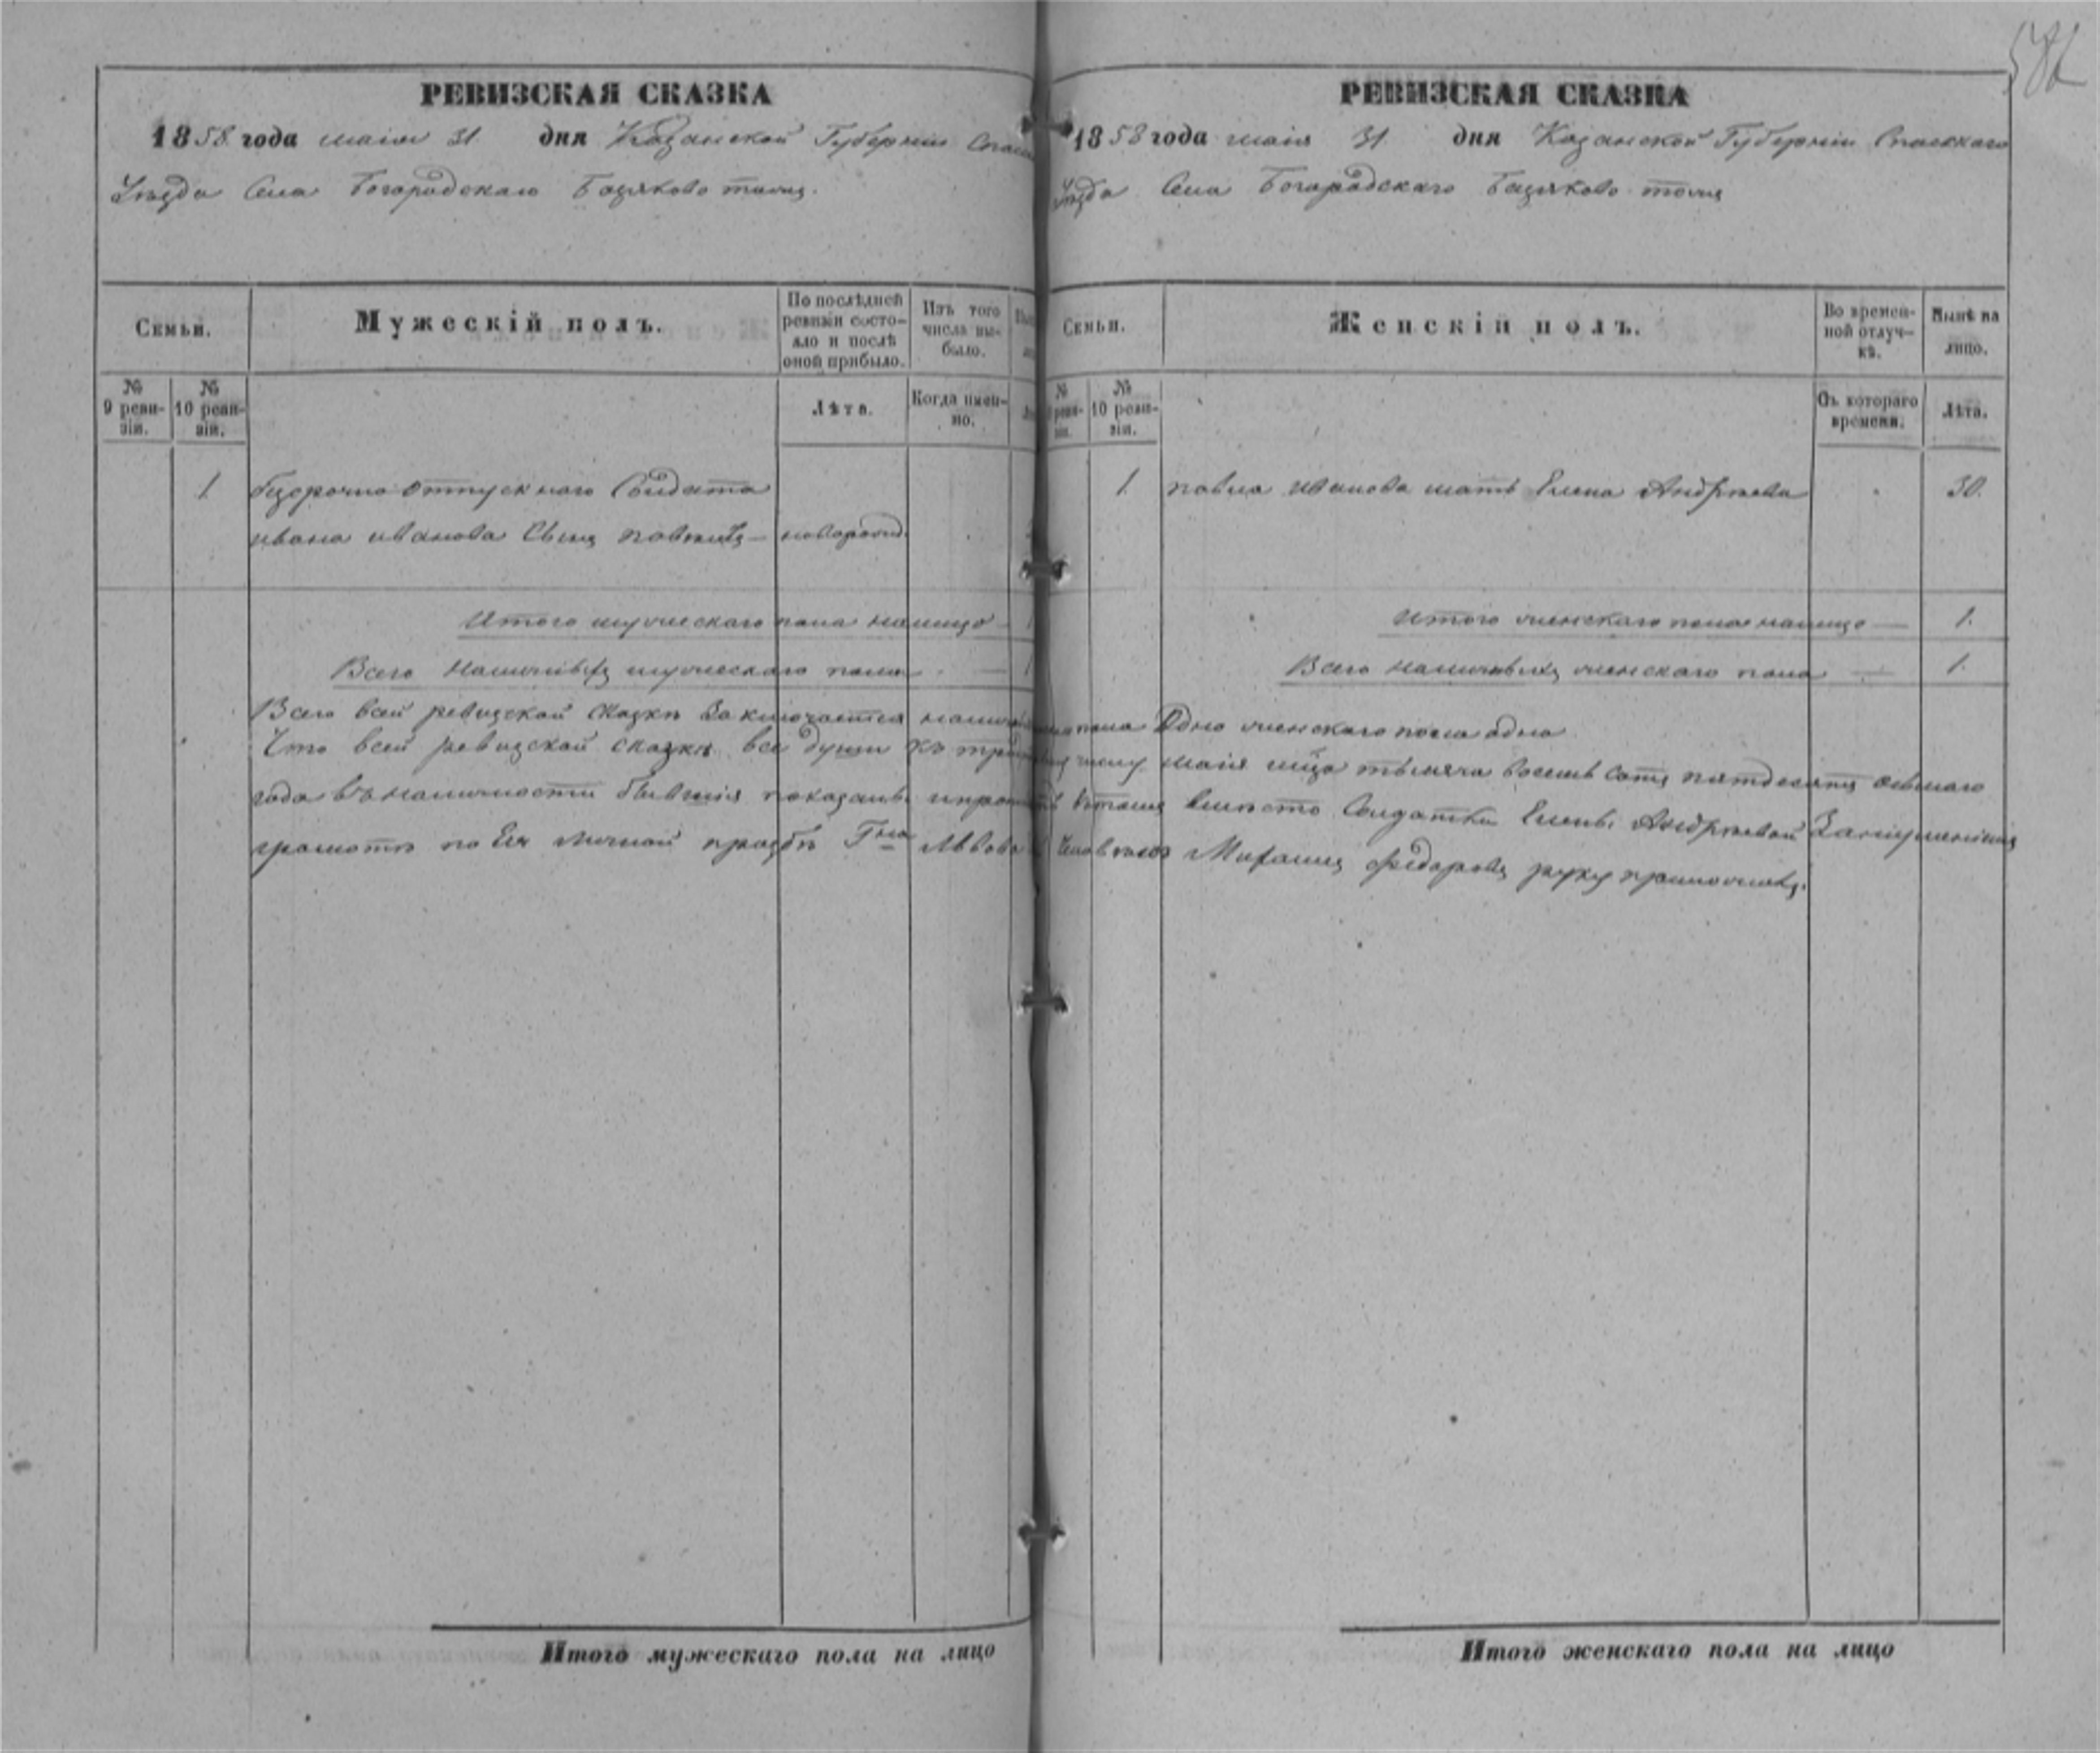 582
РЕВИЗСКАЯ СКАЗКА
1858 года маія 31 дня Казанской Губерніи Спаск
Уѣзда Села Богородскаго Базяково тожъ
Семьи.
Мужескій полъ.
По послѣдней ревизіи состояло и послѣ оной прибыло.
Изъ того числа выбыло.
№ 9 ревизіи.
№ 10 ревизіи.
Лѣта.
Когда именно.
1 безсрочно отпускного Солдата
ивана иванова Сынъ павелъ — новорожд.
Итого мужескаго пола налицо 1
Всего Наличныхъ мужескаго пола — 1
РЕВИЗСКАЯ СКАЗКА
1858 года маія 31 дня Казанской Губерніи Спаскаго
Уѣзда Села Богородскаго Базяково тожъ
Семьи.
Женскій полъ.
Во временной отлучкѣ.
Нынѣ на лицо.
№ 9 ревизіи.
№ 10 ревизіи.
Съ котораго времени.
Лѣта.
1 павла иванова мать Елена Андрѣева 30
Итого женскаго пола налицо — 1.
Всего наличныхъ женскаго пола — 1.
Всего всей ревизской сказкѣ Заключается пола Одно женскаго пола одна
Что всей ревизской сказкѣ все души къ числу маія мца тысяча восемь сотъ пятдесятъ осьмаго
года въ наличности бывшія показаны вмѣсто Солдатки Елены Андрѣевой
грамотѣ по Ея личной прозбѣ Гна Львова Человѣкъ Федоровъ руку приложилъ.
Итого мужескаго пола на лицо
Итого женскаго пола на лицо